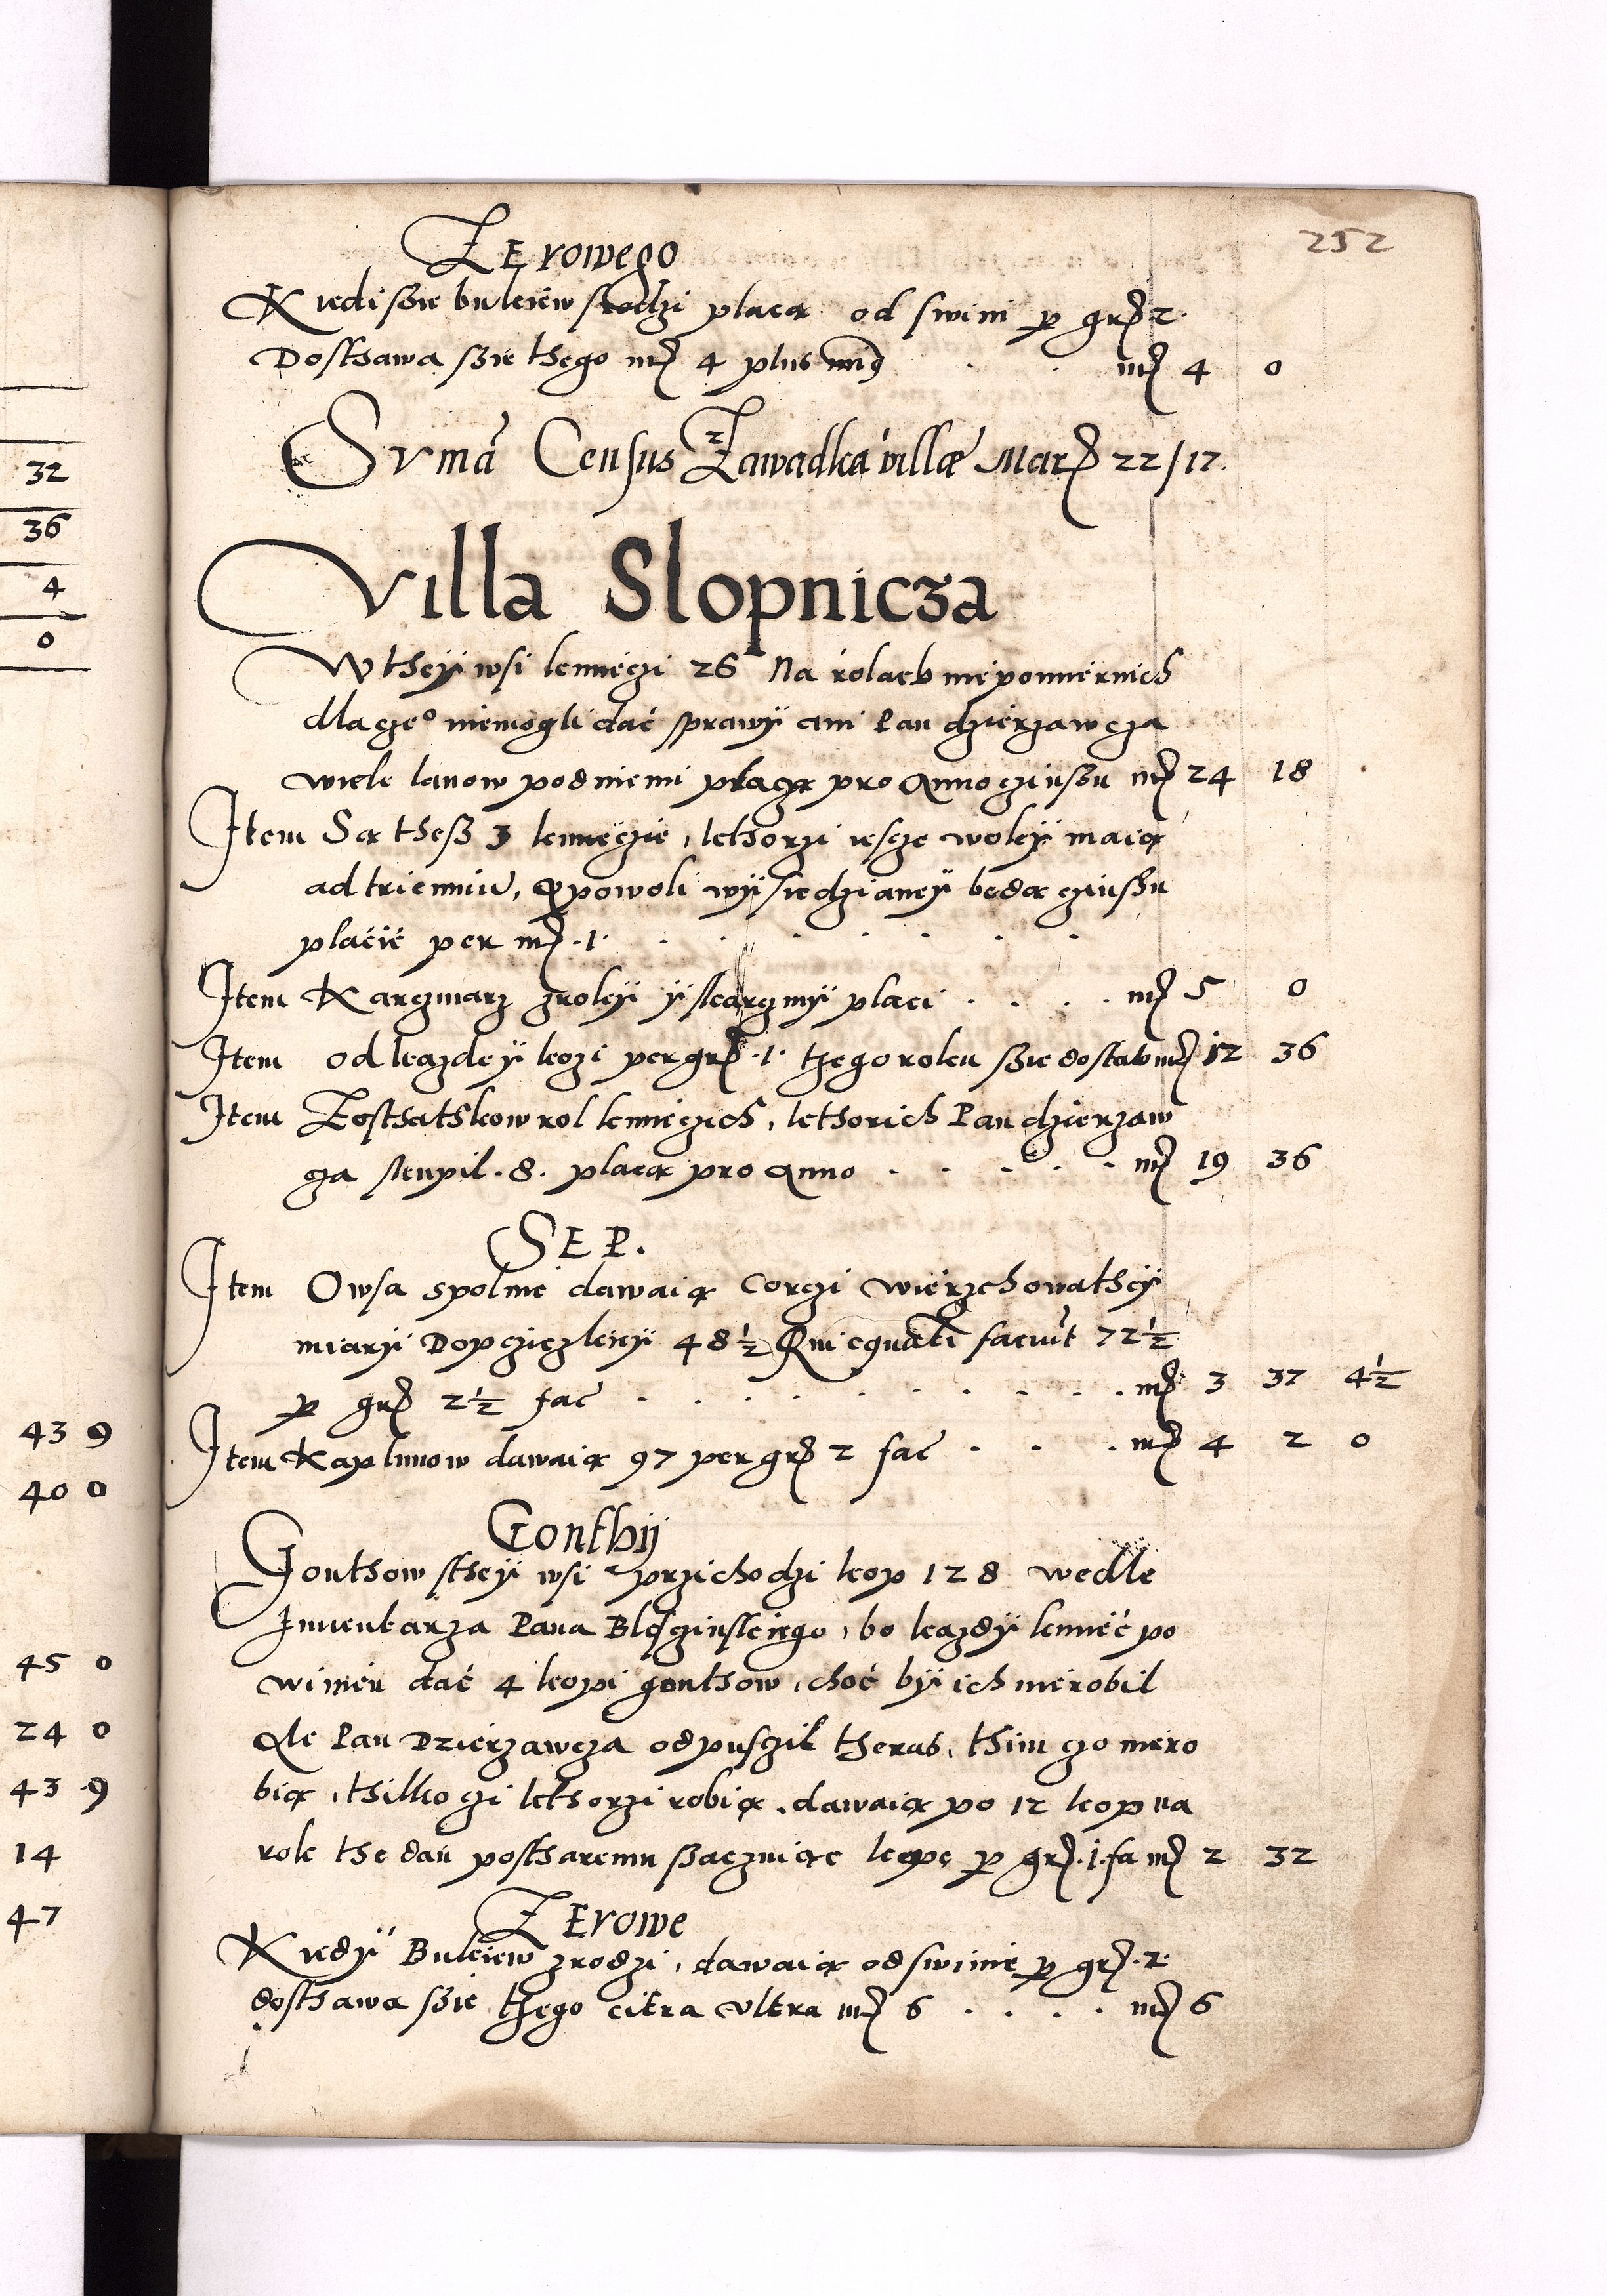 252
Zerowego
Kiedi szie bukiew srodzi placą od swini per grß 2.
Dosthawa szie thego mß 4 plus minus . . mß 4 0
Suma Census Zawadka villæ Marß 22/17.
Villa Slopnicza
W theÿ wsi kmieczi 26 Na rolach niepomiernich
dla czeº niemogli dać sprawÿ ani Pan dzierzawcza
wiele lanow pod niemi płaczą pro Anno czinszu mß 24 18
Item Są thesz 3 kmieczie, kthorzi iescze woleÿ maią
ad trienniu, Po powoli wÿsiedzianeÿ będą czinszu
płacić per mß .1. . . . . . . . .
Item Karczmarz zroleÿ ÿ skarczmÿ placi . . . . mß 5 0
Item od kazdeÿ kozi per grß .1. tzego roku szie dostało mß 12 36
Item Zosthathkow rol kmieczich, kthorich Pan dzierzaw
cza skupil .8. placą pro Anno . . . . . mß 19 36
SEP.
Item Owsa spolnie dawaią Corczi wierzchowatheÿ
miarÿ Dopczieczkieÿ 48½ Qui equati faciut 72½
per grß 2½ fac . . . . . . . . . mß 3 37 4½
Item Kaplunow dawaią 97 per grß 2 fac . . . mß 4 2 0
Gonthÿ
Gonthow stheÿ wsi przichodzi kop 128 wedle
Inuentarza Pana Bleszinskiego, bo kazdÿ kmieć po
winien dać 4 kopi gonthow, choć bÿ ich nierobil
Ale Pan Dzierzawcza odpusczil theras, thim czo niero
bią, thilko czi kthorzi robią, dawaią po 12 kop na
rok the dan postharemu szacziuiąc kopę per grß .1. fa mß 2 32
Zerowe
Kiedÿ Bukiew zrodzi, dawaią od swinie per grß .2.
dosthawa szie thego citra vltra mß 6 . . . . mß 6
32
36
4
0
43 9
40 0
45 0
24 0
43 9
14
47